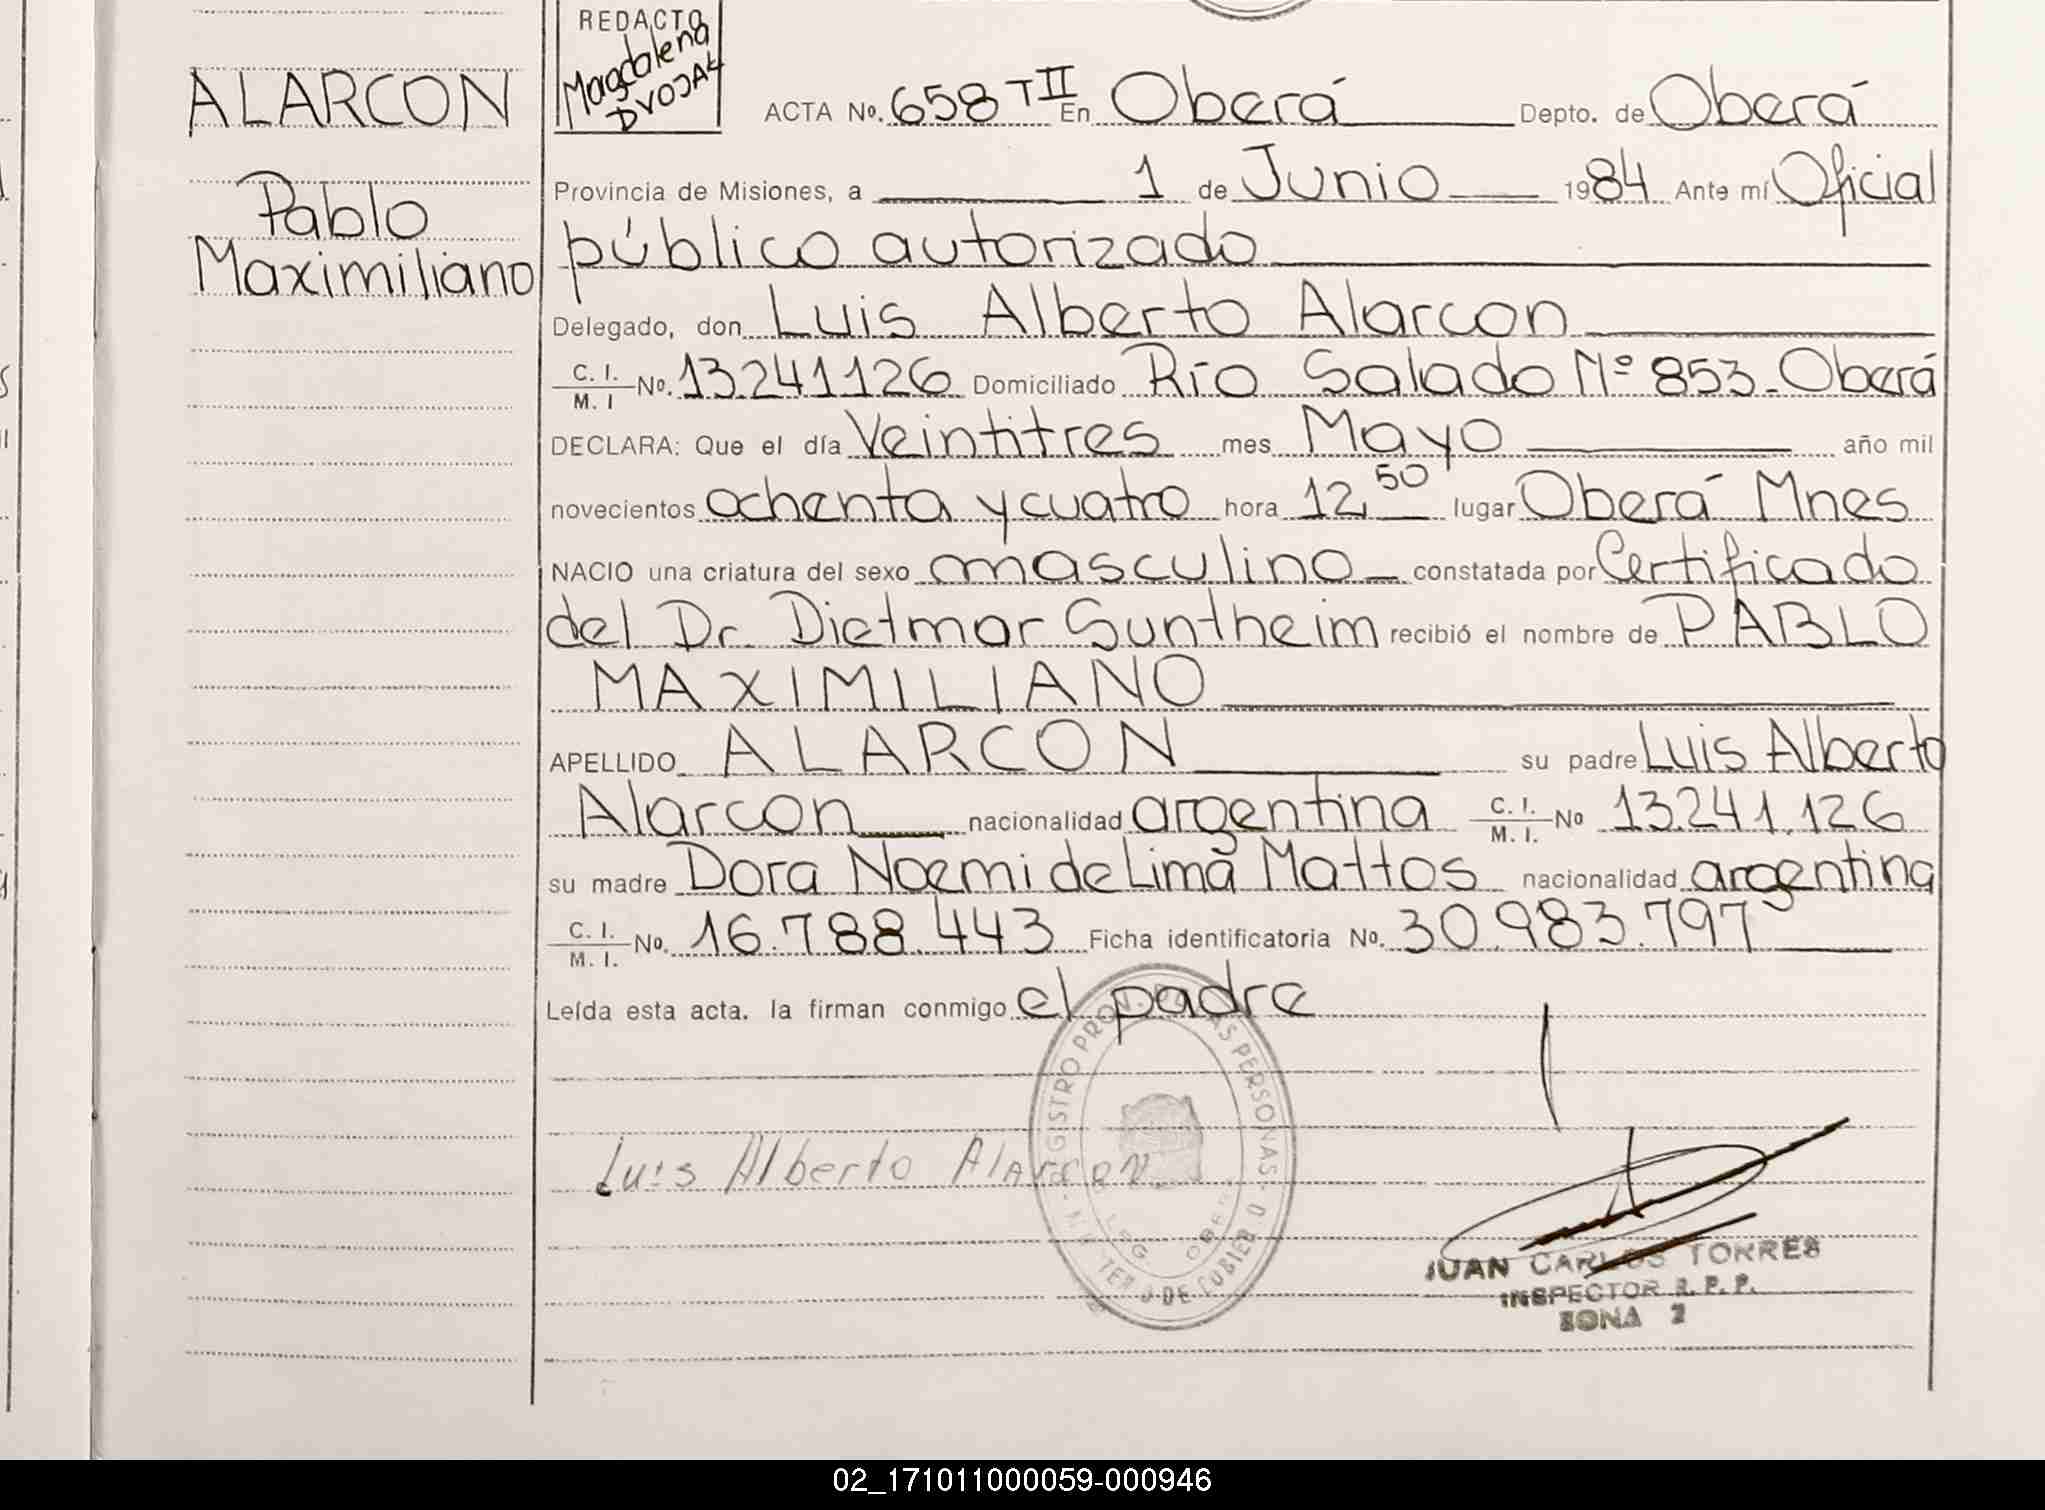 ALARCON
Pablo
Maximiliano
REDACTO
Magdalena
DVOJAK
ACTA No. 658 T II En Oberá Depto. de Oberá
Provincia de Misiones, a 1 de Junio 1984 Ante mí Oficial
público autorizado
Delegado, don Luis Alberto Alarcon
C. I. / M. I No. 13.241126 Domiciliado Río Salado Nº 853-Oberá
DECLARA: Que el día Veintitres mes Mayo año mil
novecientos ochenta y cuatro hora 12,50 lugar Oberá Mnes
NACIO una criatura del sexo masculino constatada por Certificado
del Dr. Dietmar Suntheim recibió el nombre de PABLO
MAXIMILIANO
APELLIDO ALARCON su padre Luis Alberto
Alarcon nacionalidad argentina C. I. / M. I. No 13.241.126
su madre Dora Noemi de Lima Mattos nacionalidad argentina
C. I. / M. I. No. 16.788.443 Ficha identificatoria No. 30.983.797
Leída esta acta. la firman conmigo el padre
REGISTRO PROV. DE LAS PERSONAS
Luis Alberto Alarcon
JUAN CARLOS TORRES
INSPECTOR R. P. P.
ZONA 2
02_171011000059-000946